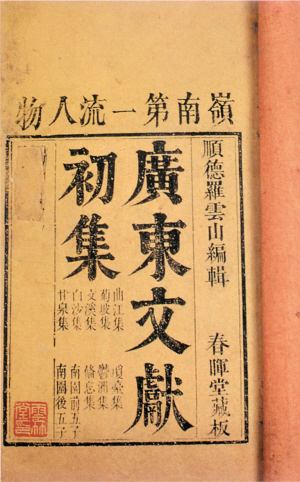 嶺南第一流人物
順德羅雲山編輯 春暉堂藏板
廣東文獻
初集
曲江集 瓊臺集
菊坡集 鬱洲集
文溪集 俻忘集
白沙集 南園前五子
甘泉集 南園後五子